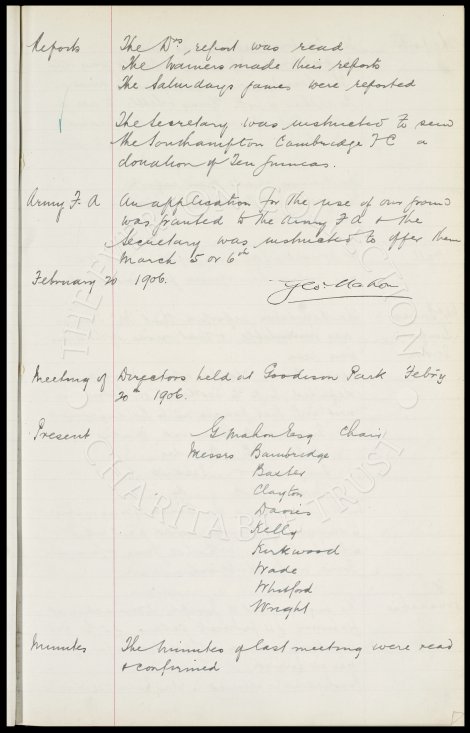 Reports The Drs report was read
The Trainers made their reports
The Saturdays games were reported
The Secretary was instructed to send
the Southampton Cambridge F C a
donation of Ten Guineas.
Army F. A An application for the use of our ground
was granted to the Army F A & the
Secretary was instructed to offer them
March 5 or 6th
February 20 1906. Geo. Mahon
Meeting of Directors held at Goodison Park Feb'y
20th 1906.
Present G Mahon Esq Chair
Messrs Bainbridge
Baxter
Clayton
Davies
Kelly
Kirkwood
Wade
Whitford
Wright
Minutes The Minutes of last meeting were read
& confirmed
THE EVERTON COLLECTION
CHARITABLE TRUST